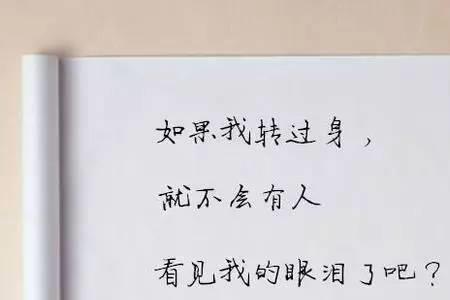 如果我转过身，
就不会有人
看见我的眼泪了吧？